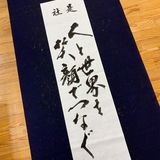 社是
人と世界を
笑顔でつなぐ